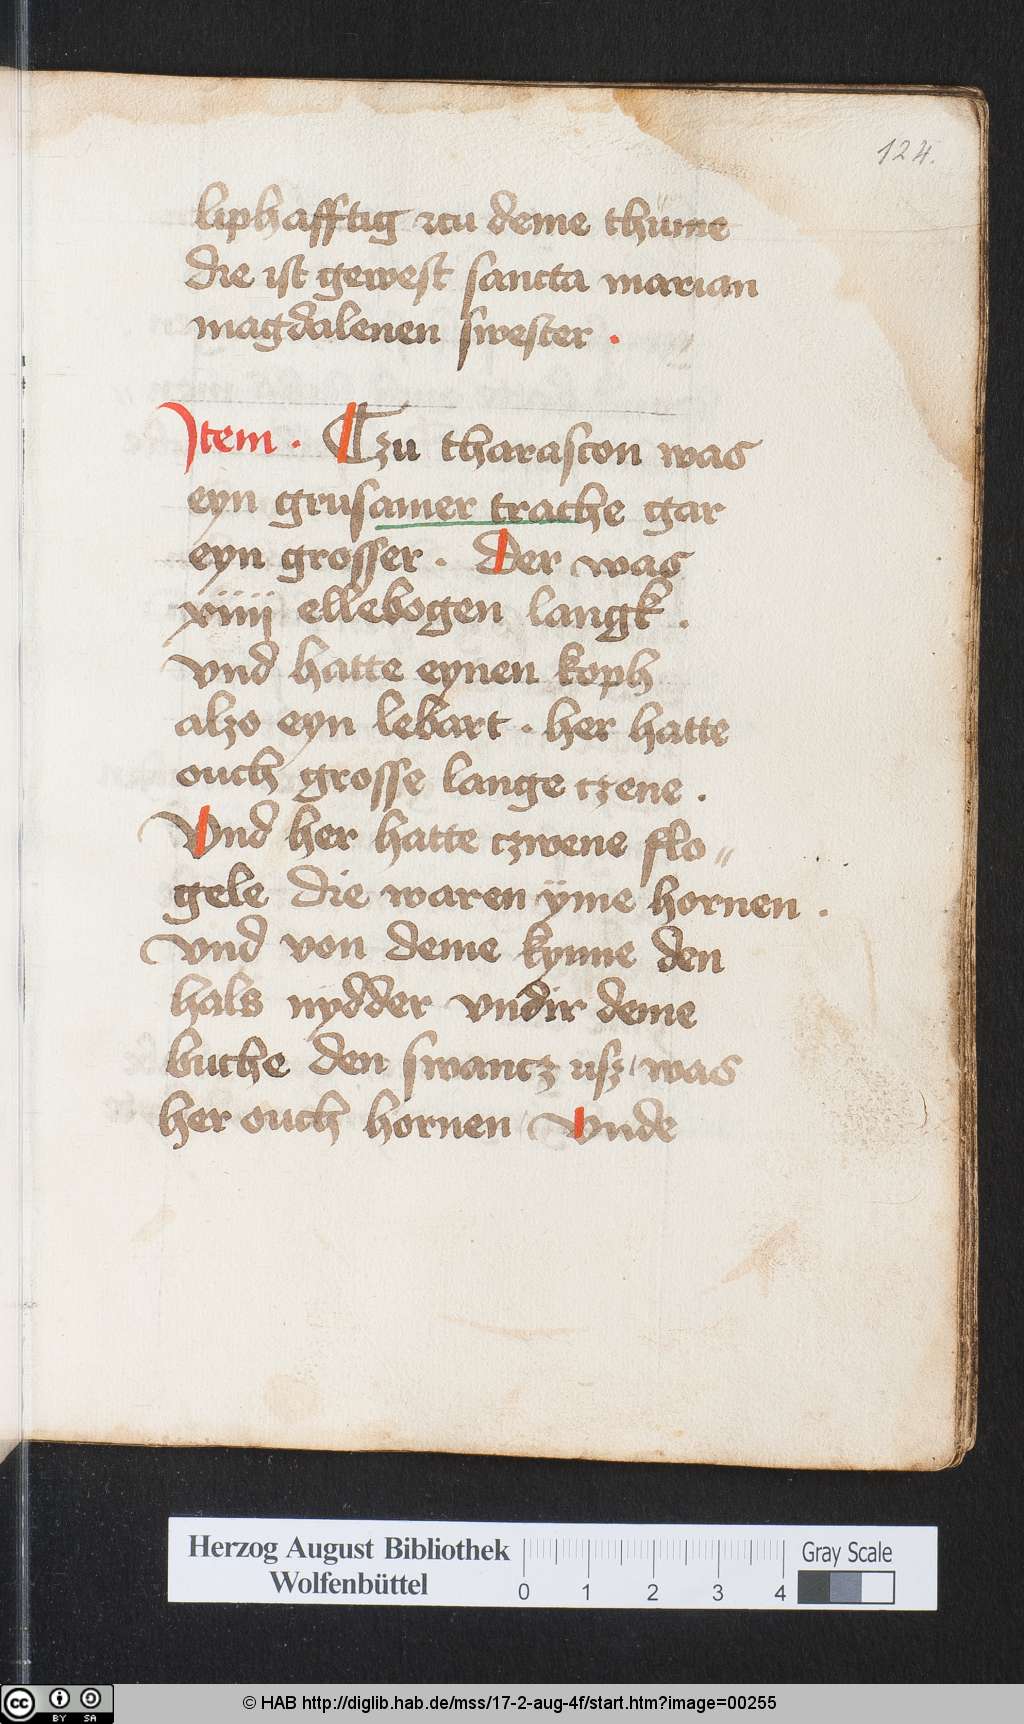 124.
liphafftig zcu deme thüme
die ist gewest sancta marian
magdalenen swester .
Item . Tzu tharascon was
eyn grusamer trache gar
eyn grosser . Der was
xiiij ellebogen langk .
vnd hatte eynen koph
alzo eyn lebart . her hatte
ouch grosse lange czene .
Vnd her hatte czwene flo〃
gele die waren yme hornen .
vnd von deme kynne den
hals nydder vndir deme
buche den swancz usz was
her ouch hornen Vnde
Herzog August Bibliothek
Wolfenbüttel
0 1 2 3 4
Gray Scale
cc BY SA
© HAB http://diglib.hab.de/mss/17-2-aug-4f/start.htm?image=00255